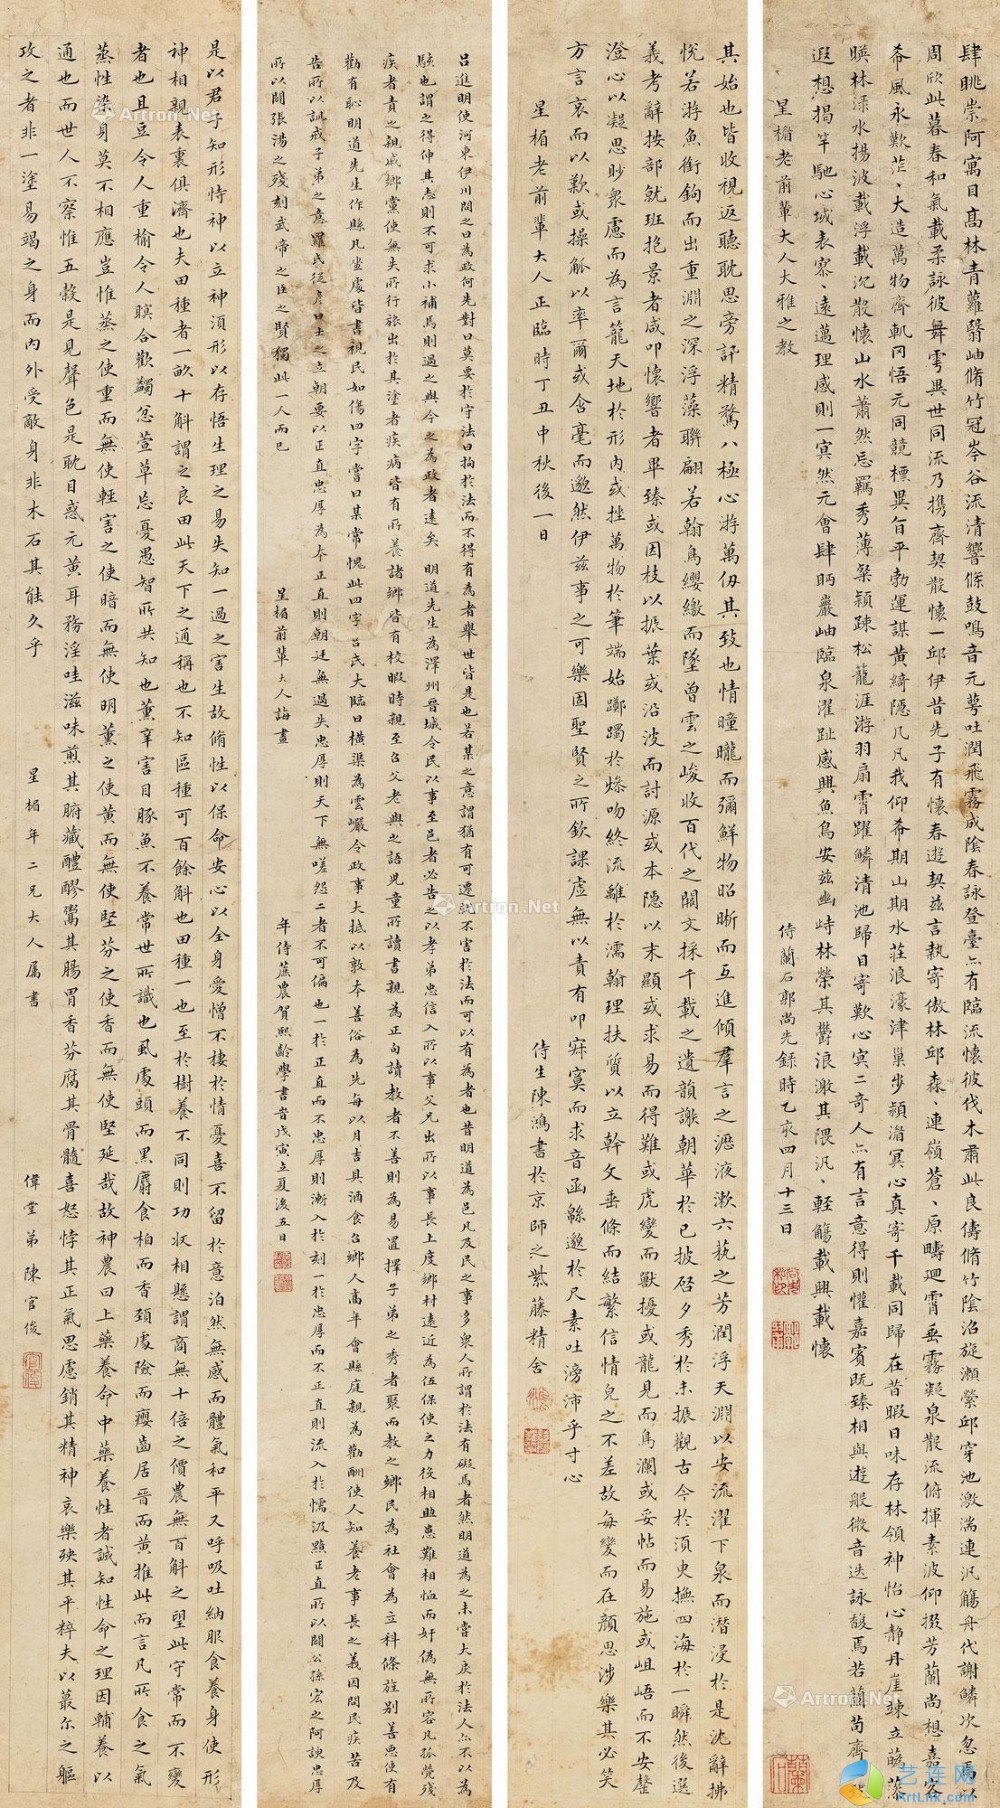 肆眺崇阿寓目髙林青蘿翳岫脩竹冠岑谷流清響條鼓鳴音元萼吐潤飛霧成陰春詠登臺亦有臨流懷彼伐木肅此良儔脩竹陰沼旋瀨縈邱穿池激湍連汎觴舟代謝鱗次忽焉以
周欣此暮春和氣載柔詠彼舞雩異世同流乃携齊契散懷一邱伊昔先子有懷春遊契兹言執寄傲林邱森、連嶺蒼、原疇迴霄垂霧凝泉散流俯揮素波仰掇芳蘭尚想嘉客
希風永歎茫、大造萬物齊軌罔悟元同競標異旨平勃運謀黄綺隱几凡我仰希期山期水莊浪濠津巢步潁湄冥心真寄千載同歸在昔暇日味存林領神怡心靜丹崖竦立葩藻
暎林渌水揚波載浮載沉散懷山水蕭然忘羈秀薄粲穎踈松籠涯游羽扇霄躍鱗清池歸目寄歎心冥二奇人亦有言意得則懽嘉賓旣臻相與遊般微音迭詠馥焉若蘭苟齊
遐想揭竿馳心域表寥、遠邁理感則一冥然元會肆眄巖岫臨泉濯趾感興魚鳥安兹幽峙林榮其欝浪激其隈汎、輕觴載興載懷
星楣老前輩大人大雅之教
侍蘭石郭尚先錄時乙亥四月十三日
其始也皆收視返聽耽思旁訊精騖八極心游萬仞其致也情曈曨而彌鮮物昭晰而互進傾羣言之瀝液漱六藝之芳潤浮天淵以安流濯下泉而潛浸於是沈辭拂
悅若游魚銜鉤而出重淵之深浮藻聯翩若翰鳥纓繳而墜曾雲之峻收百代之闕文採千載之遺韻謝朝華於已披啓夕秀於未振觀古今於須臾撫四海於一瞬然後選
義考辭按部就班抱景者咸叩懷響者畢臻或因枝以振葉或沿波而討源或本隱以末顯或求易而得難或虎變而獸擾或龍見而鳥瀾或妥帖而易施或岨峿而不安罄
澄心以凝思眇衆慮而為言籠天地於形內或挫萬物於筆端始躑躅於燥吻終流離於濡翰理扶質以立幹文垂條而結繁信情皃之不差故每變而在顔思涉樂其必笑
方言哀而以歎或操觚以率爾或含毫而邈然伊茲事之可樂固聖賢之所欽課虛無以責有叩寂寞而求音函緜邈於尺素吐滂沛乎寸心
星楣老前輩大人正臨時丁丑中秋後一日
侍生陳鴻書於京師之紫藤精舍
呂進明使河東伊川問之曰為政何先對曰莫要於守法曰拘於法而不得有為者舉世皆是也若某之意謂猶有可遷就不害於法而可以有為者也昔明道為邑凡及民之事多衆人所謂於法有礙焉者然明道為之未嘗大戾於法人亦不以為
駭也謂之得伸其志則不可求小補焉則過之與今之為政者遠矣明道先生為澤州晉城令民以事至邑者必告之以孝弟忠信入所以事父兄出所以事長上度鄉村遠近為伍保使之力役相助患難相恤而奸偽無所容凡孤煢殘
疾者責之親戚鄉黨使無失所行旅出於其塗者疾病皆有所養諸鄉皆有校暇時親至召父老與之語児童所讀書親為正句讀教者不善則為易置擇子弟之秀者聚而教之鄉民為社會為立科條旌别善惡使有
勸有恥明道先生作縣凡坐處皆書視民如傷四字嘗曰某常愧此四字呂氏大臨曰橫渠為雲巖令政事大抵以敦本善俗為先每以月吉具酒食召鄉人高年會縣庭親為勸酬使人知養老事長之義因問民疾苦及
告所以訓戒子弟之意羅氏從彥曰士之立朝要以正直忠厚為本正直則朝廷無過失忠厚則天下無嗟怨二者不可偏也一於正直而不忠厚則漸入於刻一於忠厚而不正直則流入於懦汲黯正直所以闢公孫宏之阿諛忠厚
所以闢張湯之殘刻武帝之臣之賢獨此一人而已
星楣前輩大人誨畫
年侍蔗農賀熙齡學書昔戊寅立夏後五日
是以君子知形恃神以立神須形以存悟生理之易失知一過之害生故脩性以保命安心以全身愛憎不棲於情憂喜不留於意泊然無感而體氣和平又呼吸吐納服食養身使形
神相親表裏俱濟也夫田種者一畝十斛謂之良田此天下之通稱也不知區種可百餘斛也田種一也至於樹養不同則功收相懸謂商無十倍之價農無百斛之望此守常而不變
者也且豆令人重榆令人瞑合歡蠲忿萱草忘憂愚智所共知也薰辛害目豚魚不養常世所識也虱處頭而黑麝食柏而香頚處險而癭齒居晉而黄推此而言凡所食之氣
蒸性染身莫不相應豈惟蒸之使重而無使輕害之使暗而無使明薰之使黄而無使堅芬之使香而無使延哉故神農曰上藥養命中藥養性者誠知性命之理因輔養以
通也而世人不察惟五穀是見聲色是耽目惑元黄耳務淫哇滋味煎其腑藏醴醪鬻其腸胃香芬腐其骨髓喜怒悖其正氣思慮銷其精神哀樂殃其平粹夫以蕞尔之軀
攻之者非一塗易竭之身而內外受敵身非木石其能久乎
星楣年二兄大人属書
偉堂弟陳官俊
Artron.Net
艺连网
ArtLink.com